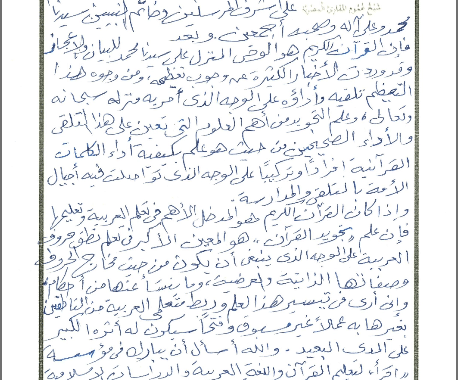 على أشرف المرسلين وخاتم النبيين سيدنا
محمد وعلى آله وصحبه أجمعين. وبعد
فإن القرآن الكريم هو الوحي المنزل على سيدنا محمد للبيان والإعجاز
وقد وردت الأخبار الكثيرة عن وجوب تعظيمه، ومن وجوه هذا
التعظيم تلقيه وأداؤه على الوجه الذي أمر به منزله سبحانه
وتعالى، وعلم التجويد من أهم العلوم التي تعين على هذا التلقي
والأداء الصحيحين من حيث هو علم بكيفية أداء الكلمات
القرآنية إفراداً وتركيباً على الوجه الذي تواصلت فيه أجيال
الأمة بالتلقي والمدارسة.
وإذا كان القرآن الكريم هو المدخل الأهم في تعلم العربية وتعليمها
فإن علم "تجويد القرآن" هو المعين الأكبر في تعلم نطق حروف
العربية على الوجه الذي ينبغي أن يكون من حيث مخارج الحروف
وصفاتها الذاتية والعرضية، وما ينشأ عنها من أحكام.
وإني أرى في تيسير هذا العلم وربط متعلمي العربية من الناطقين
بغيرها به عملاً غير مسبوق وفتحاً سيكون له أثره الكبير
على المدى البعيد. والله أسأل أن يبارك في مؤسسة
"اقرأ" لتعليم القرآن واللغة العربية والدراسات الإسلامية